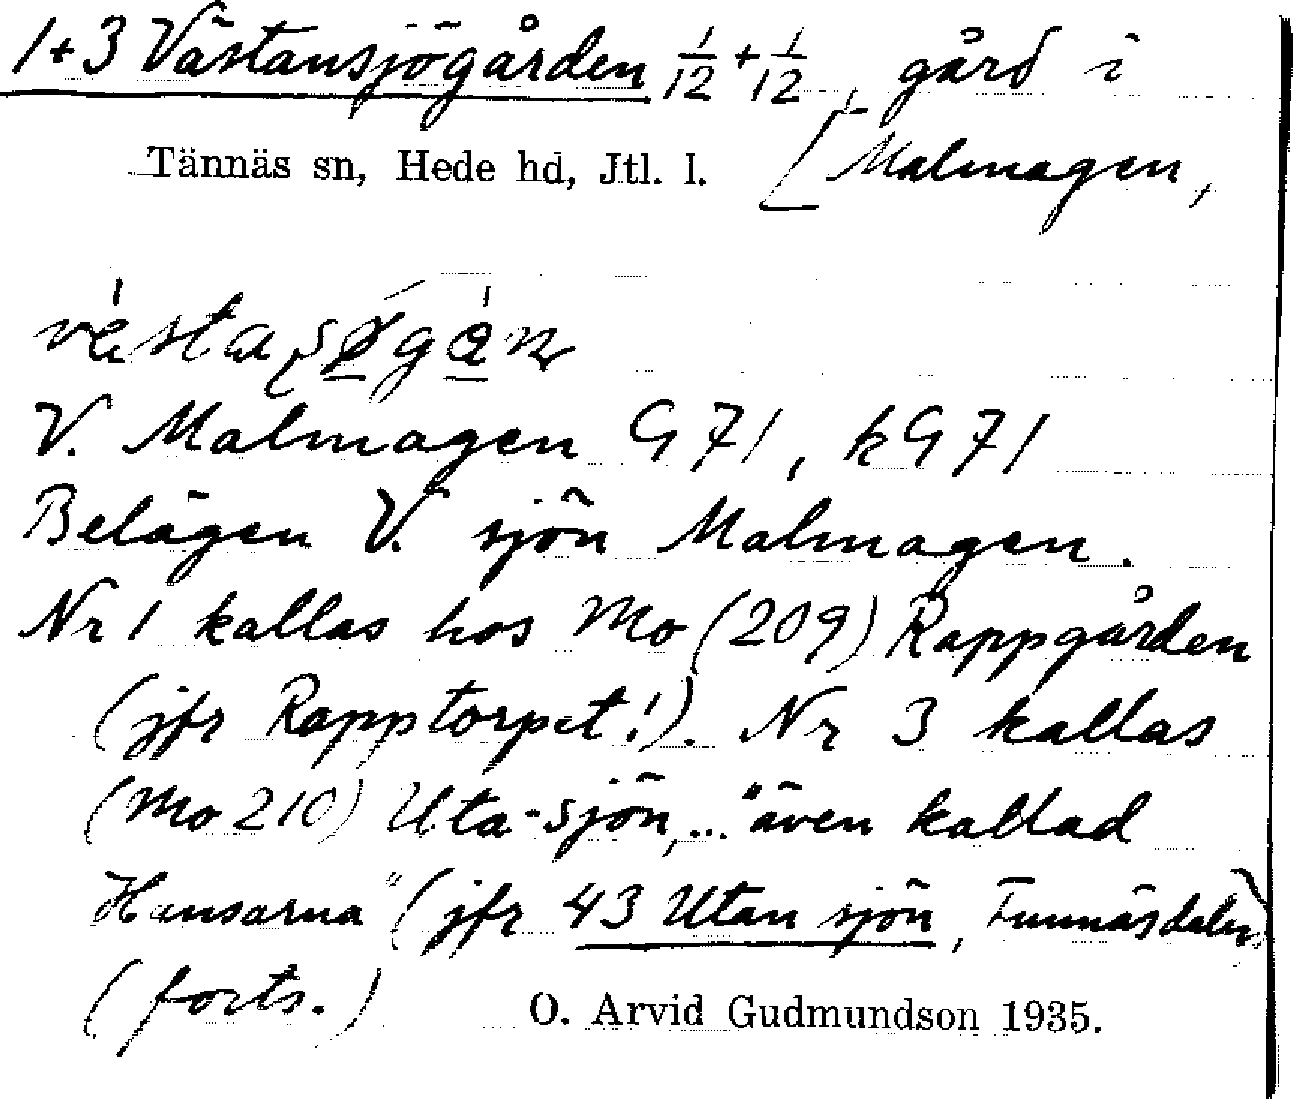 1+3 Västansjögården 1/12 + 1/12, gård i
[Malmagen,
Tännäs sn, Hede hd, Jtl. l.
V. Malmagen G 71, kG 71
Belägen V. sjön Malmagen.
Nr 1 kallas hos Mo (209) Rappgården
(jfr Rapptorpet!). Nr 3 kallas
(Mo 210) Uta-sjön,... "även kallad
Hansarna" (jfr 43 Utan sjön, Funnäsdalen)
(forts.)
O. Arvid Gudmundson 1935.